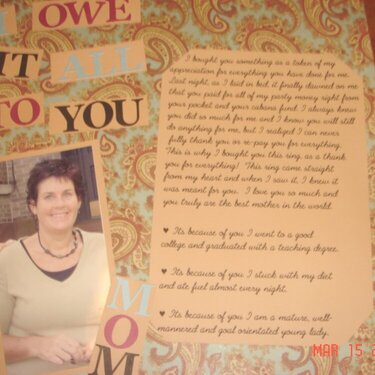 I OWE
IT ALL
TO YOU
MOM
I bought you something as a token of my
appreciation for everything you have done for me.
Last night, as I laid in bed, it finally dawned on me
that you paid for all of my party money right from
your pocket and your cabana fund. I always knew
you did so much for me and I know you will still
do anything for me, but I realized I can never
fully thank you or re-pay you for everything.
This is why I bought you this ring, as a thank
you for everything! This ring came straight
from my heart and when I saw it, I knew it
was meant for you. I love you so much and
you truly are the best mother in the world.
♥ Its because of you I went to a good
college and graduated with a teaching degree.
♥ Its because of you I stuck with my diet
and ate fuel almost every night.
♥ Its because of you I am a mature, well-
mannered and goal orientated young lady.
MAR 15